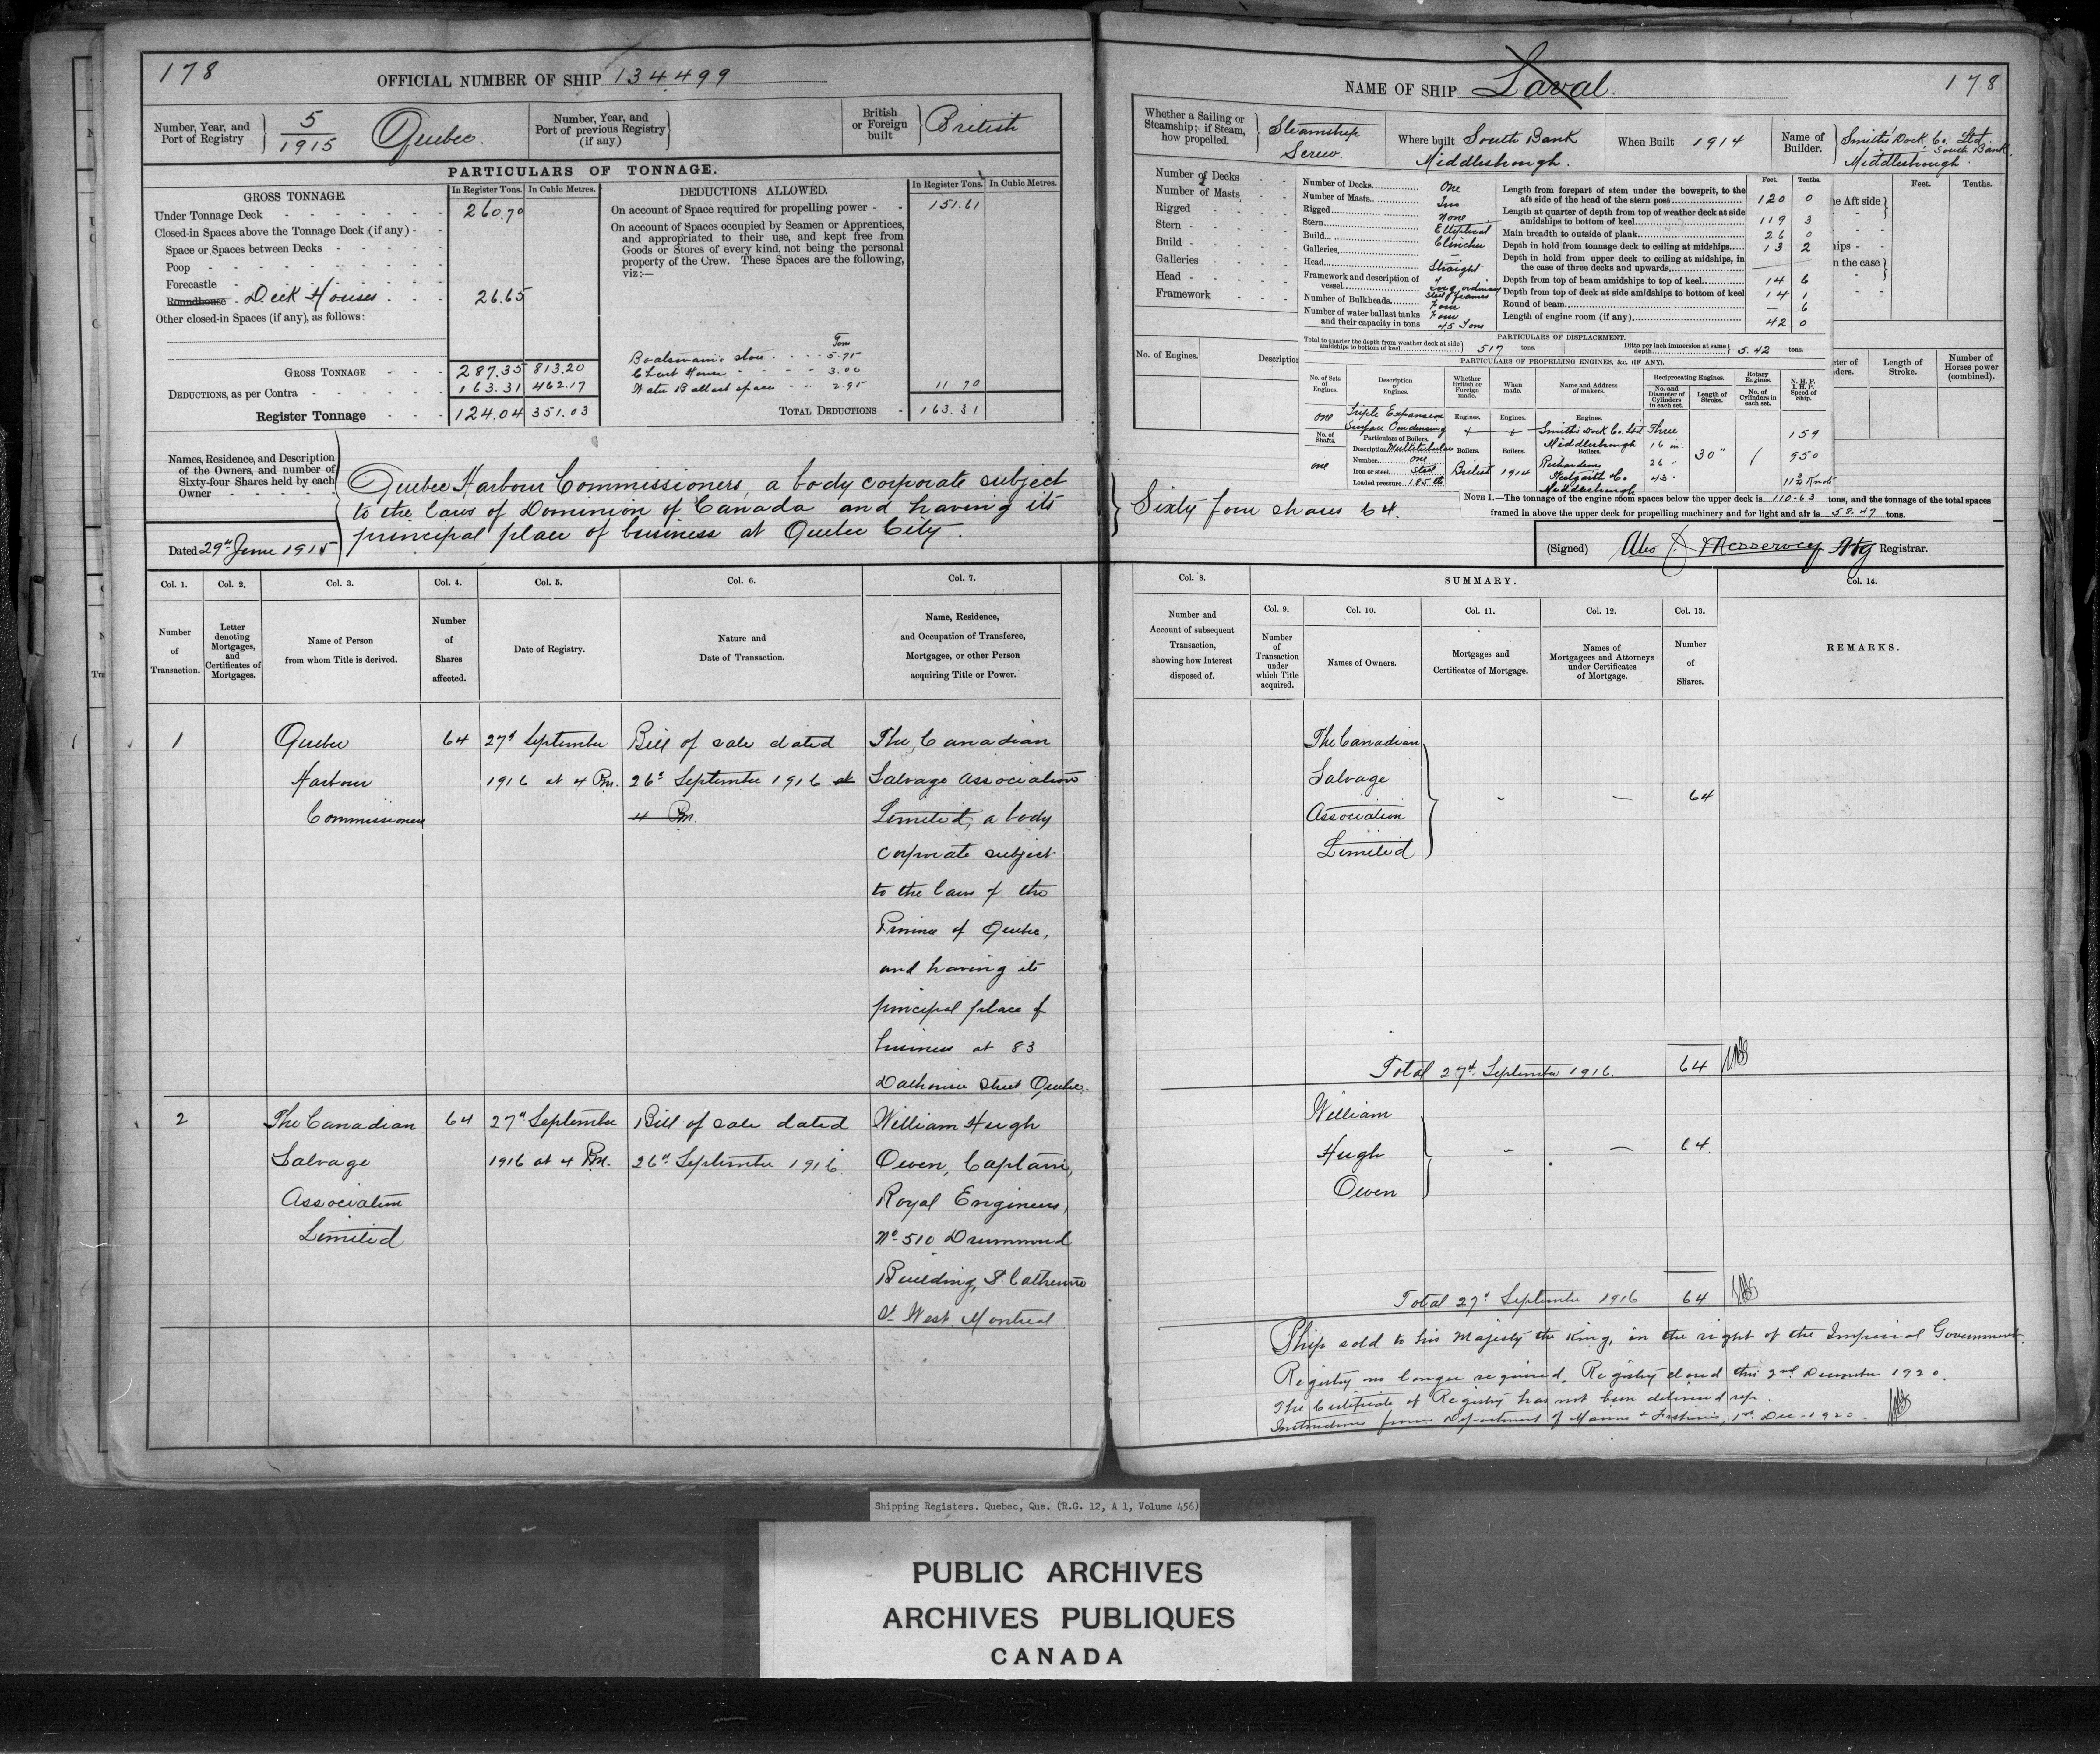 178
OFFICIAL NUMBER OF SHIP 134,499
Number, Year, and Port of Registry } 5/1915 Quebec
Number, Year, and Port of previous Registry (if any) }
British or Foreign built } British
PARTICULARS OF TONNAGE.
GROSS TONNAGE. In Register Tons. In Cubic Metres.
Under Tonnage Deck 260.70
Closed-in Spaces above the Tonnage Deck (if any)
Space or Spaces between Decks
Poop
Forecastle
Roundhouse Deck Houses 26.65
Other closed-in Spaces (if any), as follows:
GROSS TONNAGE 287.35 813.20
DEDUCTIONS, as per Contra 163.31 462.17
Register Tonnage 124.04 351.03
DEDUCTIONS ALLOWED. In Register Tons. In Cubic Metres.
On account of Space required for propelling power 151.61
On account of Spaces occupied by Seamen or Apprentices,
and appropriated to their use, and kept free from
Goods or Stores of every kind, not being the personal
property of the Crew. These Spaces are the following,
viz:—
Tons
Boatswain's store 5.75
Chart House 3.00
Water Ballast space 2.95 11 70
TOTAL DEDUCTIONS 163.31
Names, Residence, and Description
of the Owners, and number of
Sixty-four Shares held by each
Owner
Quebec Harbour Commissioners, a body corporate subject
to the laws of Dominion of Canada and having its
principal place of business at Quebec City.
Dated 29th June 1915
Col. 1. Col. 2. Col. 3. Col. 4. Col. 5. Col. 6. Col. 7.
Number of Transaction.
Letter denoting Mortgages, and Certificates of Mortgages.
Name of Person from whom Title is derived.
Number of Shares affected.
Date of Registry.
Nature and Date of Transaction.
Name, Residence, and Occupation of Transferee, Mortgagee, or other Person acquiring Title or Power.
1 Quebec 64 27th September Bill of sale dated The Canadian
Harbour 1916 at 4 P.m. 26th September 1916 at Salvage Association
Commissioners 4 P.m. Limited, a body
corporate subject
to the laws of the
Province of Quebec,
and having its
principal place of
business at 83
Dalhousie Street Quebec.
2 The Canadian 64 27th September Bill of sale dated William Hugh
Salvage 1916 at 4 P.M. 26th September 1916 Owen, Captain,
Association Royal Engineers,
Limited No 510 Drummond
Building, St. Catherine
St West, Montreal
NAME OF SHIP Laval. 178
Whether a Sailing or Steamship; if Steam, how propelled. } Steamship Screw.
Where built South Bank Middlesbrough.
When Built 1914
Name of Builder. } Smith's Dock Co. Ltd South Bank Middlesbrough.
Number of Decks
Number of Masts
Rigged
Stern
Build
Galleries
Head
Framework
No. of Engines.
Description
Number of Decks One
Number of Masts Two
Rigged None
Stern Elliptical
Build Clincher
Galleries —
Head Straight
Framework and description of vessel
Number of Bulkheads Four
Number of water ballast tanks and their capacity in tons Four 45 Tons
Feet. Tenths.
Length from forepart of stem under the bowsprit, to the aft side of the head of the stern post 120 0
Length at quarter of depth from top of weather deck at side amidships to bottom of keel 119 3
Main breadth to outside of plank 26 0
Depth in hold from tonnage deck to ceiling at midships 13 2
Depth in hold from upper deck to ceiling at midships, in the case of three decks and upwards
Depth from top of beam amidships to top of keel 14 6
Depth from top of deck at side amidships to bottom of keel 14 1
Round of beam — 6
Length of engine room (if any) 42 0
Feet. Tenths.
PARTICULARS OF DISPLACEMENT.
Total to quarter the depth from weather deck at side amidships to bottom of keel } 517 tons.
Ditto per inch immersion at same depth } 5.42 tons.
PARTICULARS OF PROPELLING ENGINES, &c. (IF ANY).
No. of Sets of Engines.
Description of Engines.
Whether British or Foreign made.
When made.
Name and Address of makers.
Reciprocating Engines.
No. and Diameter of Cylinders in each set.
Length of Stroke.
Rotary Engines.
No. of Cylinders in each set.
N. H. P. I. H. P. Speed of ship.
Length of Stroke.
Number of Horses power (combined).
One Triple Expansion Surface Condensing
Engines. Engines. Engines. Smith's Dock Co. Ltd Middlesbrough
Three 16 in 26 " 43 " 30" 159 950 11½ Knots
No. of Shafts. one
Particulars of Boilers.
Description Multitubular
Number one
Iron or steel Steel
Loaded pressure 185 lb
Boilers. British Boilers. 1914 Boilers. Richardsons Westgarth & Co. Middlesbrough
NOTE 1.—The tonnage of the engine room spaces below the upper deck is 110.63 tons, and the tonnage of the total spaces
framed in above the upper deck for propelling machinery and for light and air is 58.47 tons.
Sixty four shares 64.
(Signed) Alex J. Messervey Atg Registrar.
Col. 8. SUMMARY. Col. 14.
Col. 9. Col. 10. Col. 11. Col. 12. Col. 13.
Number and Account of subsequent Transaction, showing how Interest disposed of.
Number of Transaction under which Title acquired.
Names of Owners.
Mortgages and Certificates of Mortgage.
Names of Mortgagees and Attorneys under Certificates of Mortgage.
Number of Shares.
REMARKS.
The Canadian
Salvage
Association 64
Limited
Total 27th September 1916. 64
William
Hugh 64.
Owen
Total 27th September 1916 64
Ship sold to his Majesty the King, in the right of the Imperial Government.
Registry no longer required. Registry closed this 2nd December 1920.
The Certificate of Registry has not been delivered up.
Instructions from Department of Marine & Fisheries, 1st Dec. 1920.
Shipping Registers. Quebec, Que. (R.G. 12, A 1, Volume 456)
PUBLIC ARCHIVES
ARCHIVES PUBLIQUES
CANADA